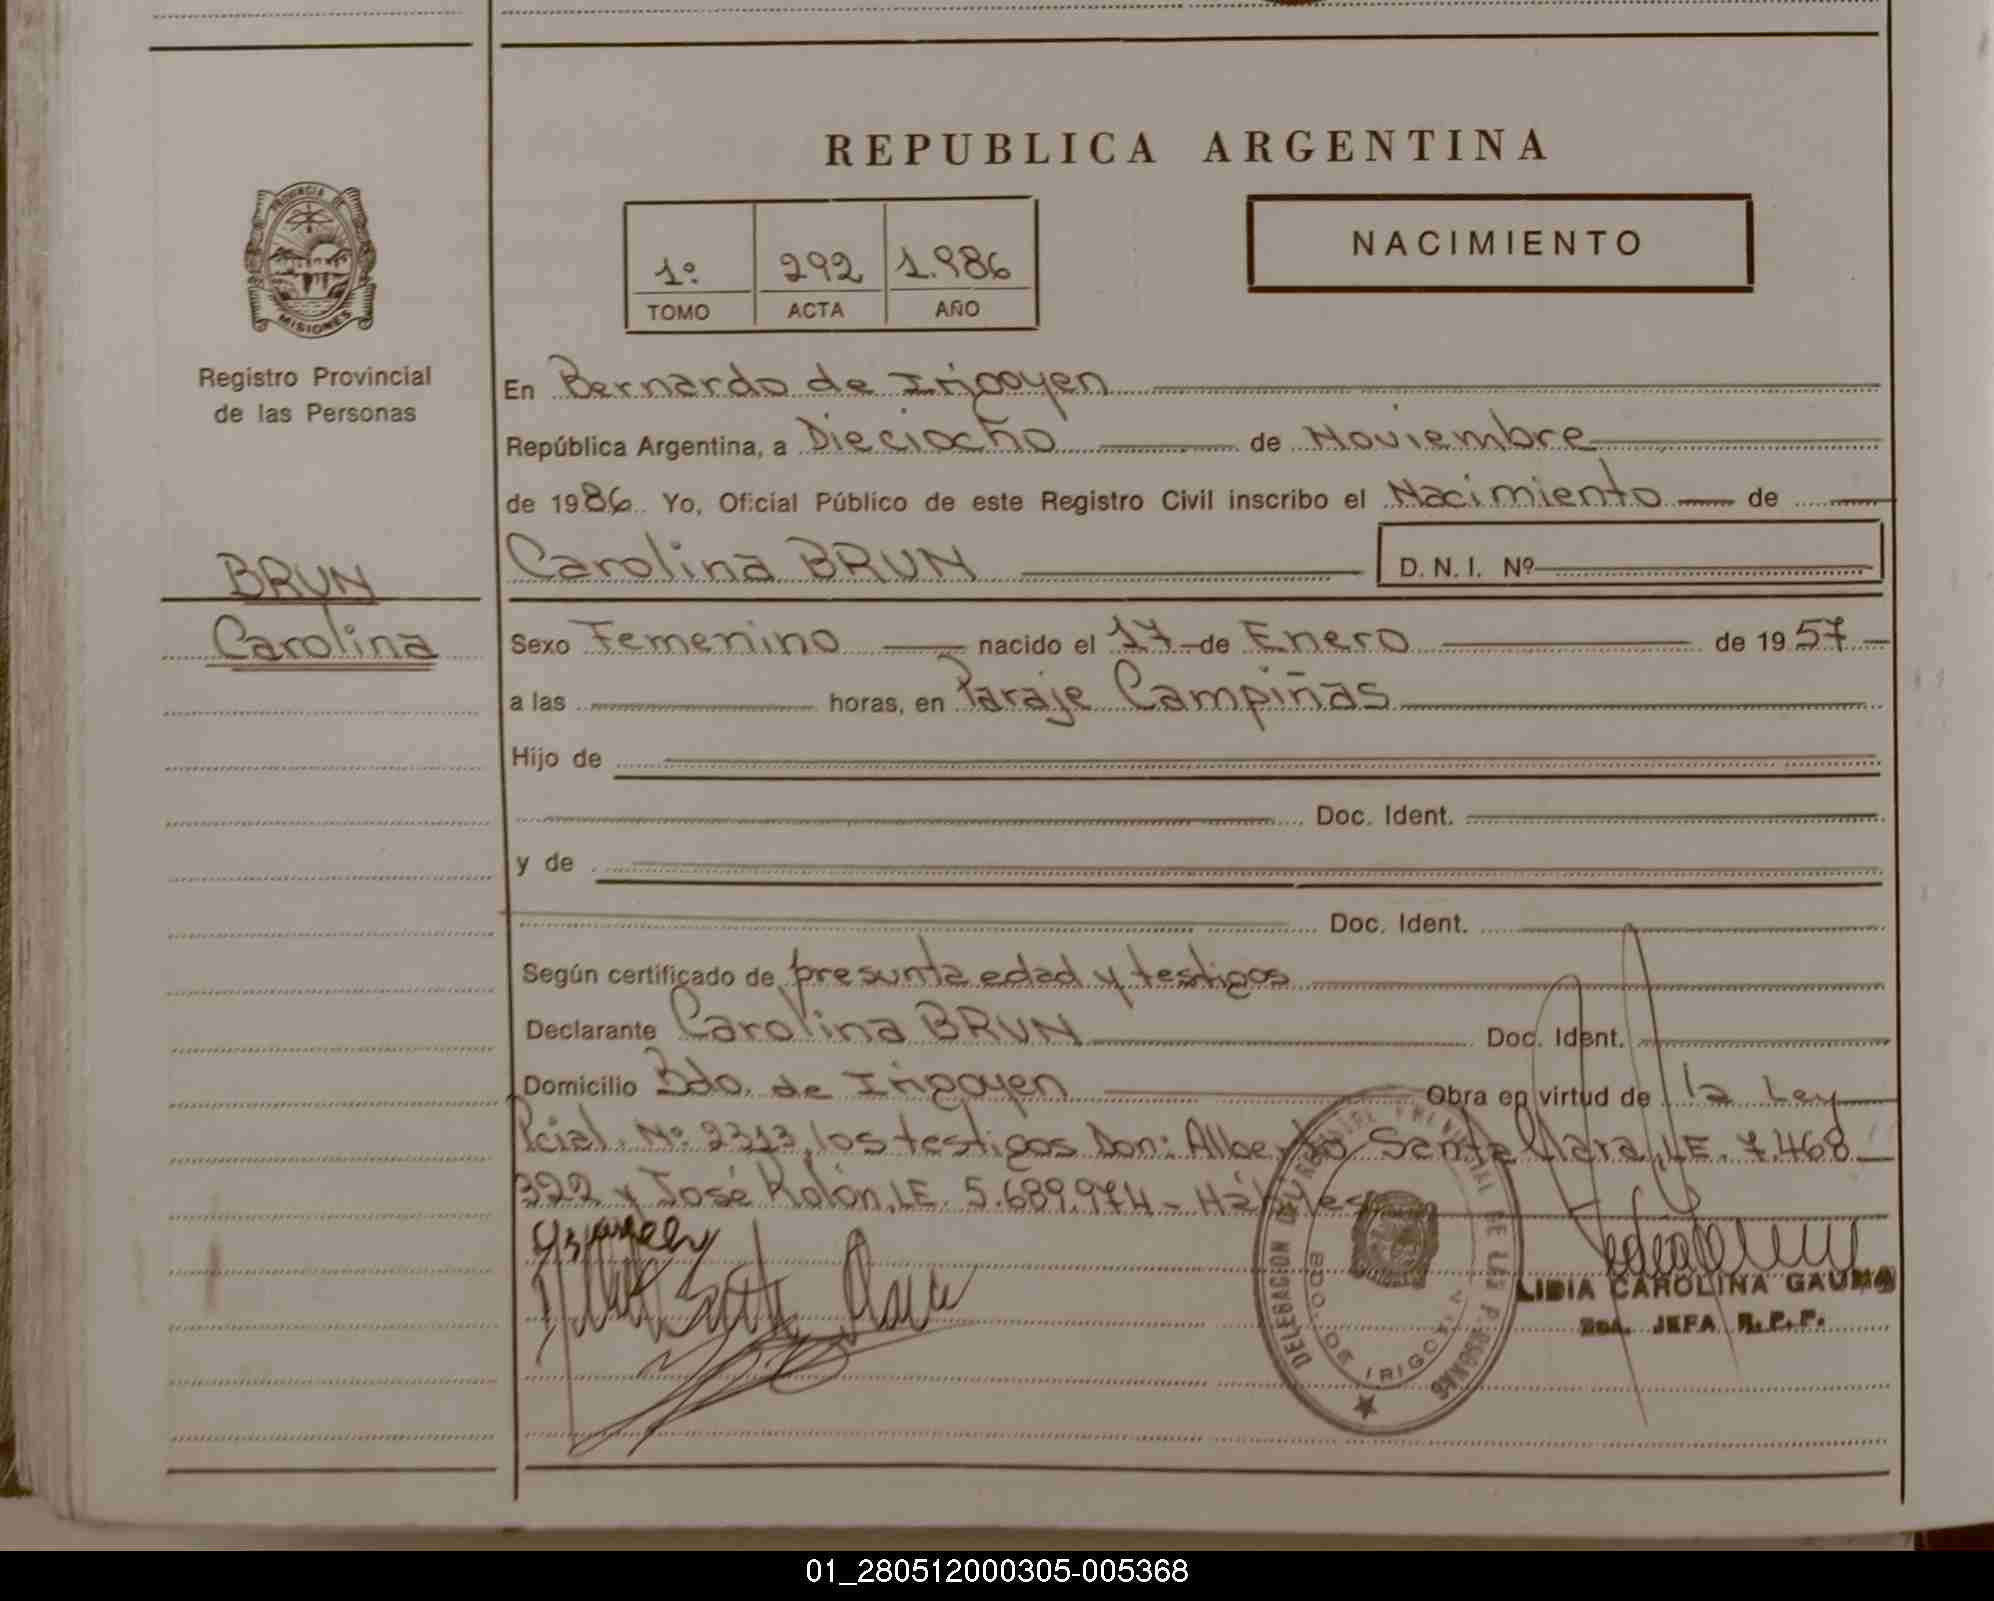 REPUBLICA ARGENTINA
PROVINCIA DE
MISIONES
Registro Provincial
de las Personas
NACIMIENTO
1º 292 1.986
TOMO ACTA AÑO
En Bernardo de Irigoyen
República Argentina, a Dieciocho de Noviembre
de 1986. Yo, Oficial Público de este Registro Civil inscribo el Nacimiento de
BRUN
Carolina
Carolina BRUN D.N.I. Nº
Sexo Femenino nacido el 17 de Enero de 1957
a las horas, en Paraje Campiñas
Hijo de
Doc. Ident.
y de
Doc. Ident.
Según certificado de presunta edad y testigos
Declarante Carolina BRUN Doc. Ident.
Domicilio Bdo. de Irigoyen Obra en virtud de la Ley
Pcial. Nº 2313, los testigos Don: Alberto Santa Clara, LE. 7.468
322 y José Rolón, LE. 5.689.974 - Hábiles
DELEGACION DEL REGISTRO PROVINCIAL DE LAS PERSONAS
BDO. DE IRIGOYEN
LIDIA CAROLINA GAUNA
JEFA R.P.P.
01_280512000305-005368